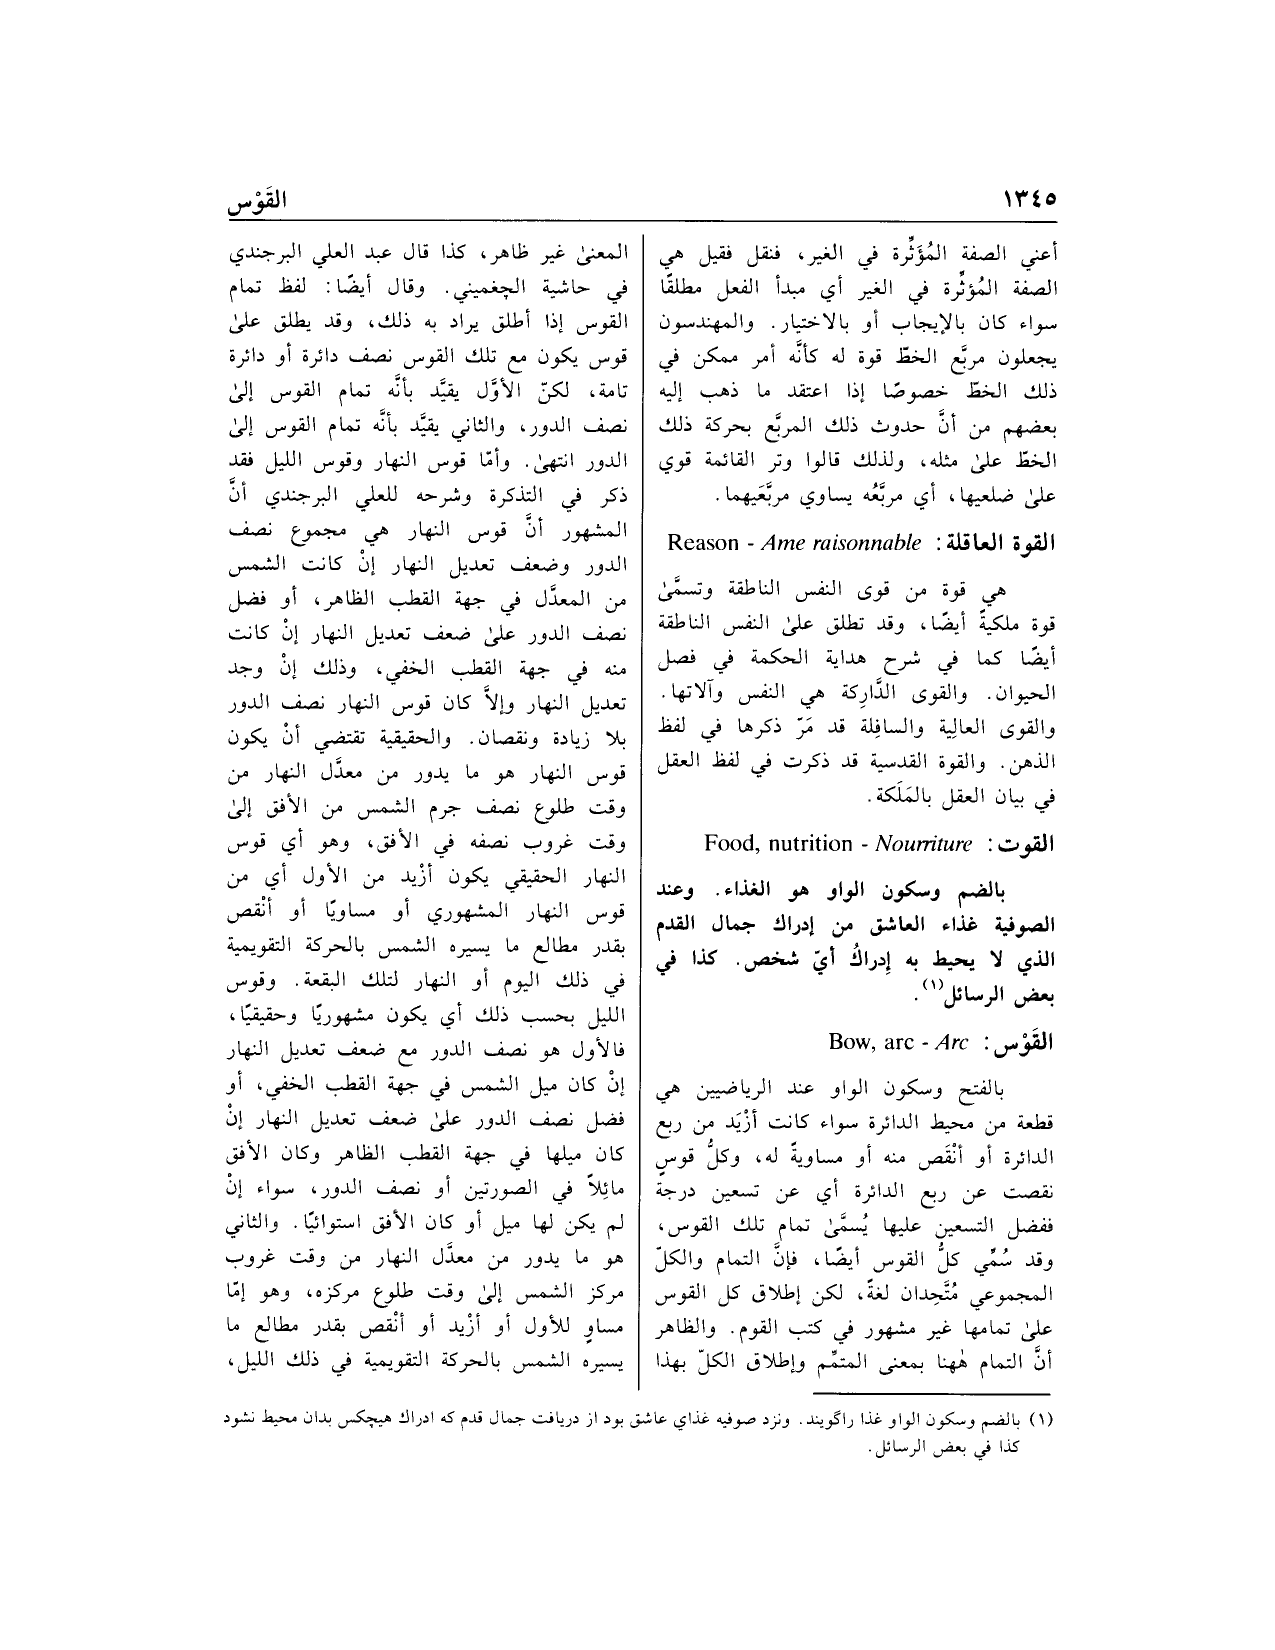 ١٣٤٥
القَوْس
أعني الصفة المُؤَثِّرة في الغير، فنقل فقيل هي
الصفة المُؤثِّرة في الغير أي مبدأ الفعل مطلقًا
سواء كان بالإيجاب أو بالاختيار. والمهندسون
يجعلون مربَّع الخطّ قوة له كأنَّه أمر ممكن في
ذلك الخطّ خصوصًا إذا اعتقد ما ذهب إليه
بعضهم من أنَّ حدوث ذلك المربَّع بحركة ذلك
الخطّ علىٰ مثله، ولذلك قالوا وتر القائمة قوي
علىٰ ضلعيها، أي مربَّعُه يساوي مربَّعَيهما.
القوة العاقلة: Reason - Ame raisonnable
هي قوة من قوى النفس الناطقة وتسمَّىٰ
قوة ملكيةً أيضًا، وقد تطلق علىٰ النفس الناطقة
أيضًا كما في شرح هداية الحكمة في فصل
الحيوان. والقوى الدَّارِكة هي النفس وآلاتها.
والقوى العالِية والسافِلة قد مَرّ ذكرها في لفظ
الذهن. والقوة القدسية قد ذكرت في لفظ العقل
في بيان العقل بالمَلَكة.
القوت: Food, nutrition - Nourriture
بالضم وسكون الواو هو الغذاء. وعند
الصوفية غذاء العاشق من إدراك جمال القدم
الذي لا يحيط به إِدراكُ أيّ شخص. كذا في
بعض الرسائل(١).
القَوْس: Bow, arc - Arc
بالفتح وسكون الواو عند الرياضيين هي
قطعة من محيط الدائرة سواء كانت أزْيَد من ربع
الدائرة أو أنْقَص منه أو مساويةً له، وكلُّ قوسٍ
نقصت عن ربع الدائرة أي عن تسعين درجة
ففضل التسعين عليها يُسمَّىٰ تمام تلك القوس،
وقد سُمِّي كلُّ القوس أيضًا، فإنَّ التمام والكلّ
المجموعي مُتَّحِدان لغةً، لكن إطلاق كل القوس
علىٰ تمامها غير مشهور في كتب القوم. والظاهر
أنَّ التمام هٰهنا بمعنى المتمِّم وإطلاق الكلّ بهذا
المعنىٰ غير ظاهر، كذا قال عبد العلي البرجندي
في حاشية الچغميني. وقال أيضًا: لفظ تمام
القوس إذا أطلق يراد به ذلك، وقد يطلق علىٰ
قوس يكون مع تلك القوس نصف دائرة أو دائرة
تامة، لكنّ الأوَّل يقيَّد بأنَّه تمام القوس إلىٰ
نصف الدور، والثاني يقيَّد بأنَّه تمام القوس إلىٰ
الدور انتهىٰ. وأمّا قوس النهار وقوس الليل فقد
ذكر في التذكرة وشرحه للعلي البرجندي أنَّ
المشهور أنَّ قوس النهار هي مجموع نصف
الدور وضعف تعديل النهار إنْ كانت الشمس
من المعدَّل في جهة القطب الظاهر، أو فضل
نصف الدور علىٰ ضعف تعديل النهار إنْ كانت
منه في جهة القطب الخفي، وذلك إنْ وجد
تعديل النهار وإلاَّ كان قوس النهار نصف الدور
بلا زيادة ونقصان. والحقيقية تقتضي أنْ يكون
قوس النهار هو ما يدور من معدَّل النهار من
وقت طلوع نصف جرم الشمس من الأفق إلىٰ
وقت غروب نصفه في الأفق، وهو أي قوس
النهار الحقيقي يكون أزْيد من الأول أي من
قوس النهار المشهوري أو مساويًا أو أنْقص
بقدر مطالع ما يسيره الشمس بالحركة التقويمية
في ذلك اليوم أو النهار لتلك البقعة. وقوس
الليل بحسب ذلك أي يكون مشهوريًا وحقيقيًا،
فالأول هو نصف الدور مع ضعف تعديل النهار
إنْ كان ميل الشمس في جهة القطب الخفي، أو
فضل نصف الدور علىٰ ضعف تعديل النهار إنْ
كان ميلها في جهة القطب الظاهر وكان الأفق
مائِلاً في الصورتين أو نصف الدور، سواء إنْ
لم يكن لها ميل أو كان الأفق استوائيًا. والثاني
هو ما يدور من معدَّل النهار من وقت غروب
مركز الشمس إلىٰ وقت طلوع مركزه، وهو إمّا
مساوٍ للأول أو أزْيد أو أنْقص بقدر مطالع ما
يسيره الشمس بالحركة التقويمية في ذلك الليل،
(١) بالضم وسكون الواو غذا راگويند. ونزد صوفيه غذاي عاشق بود از دريافت جمال قدم كه ادراك هيچكس بدان محيط نشود
كذا في بعض الرسائل.